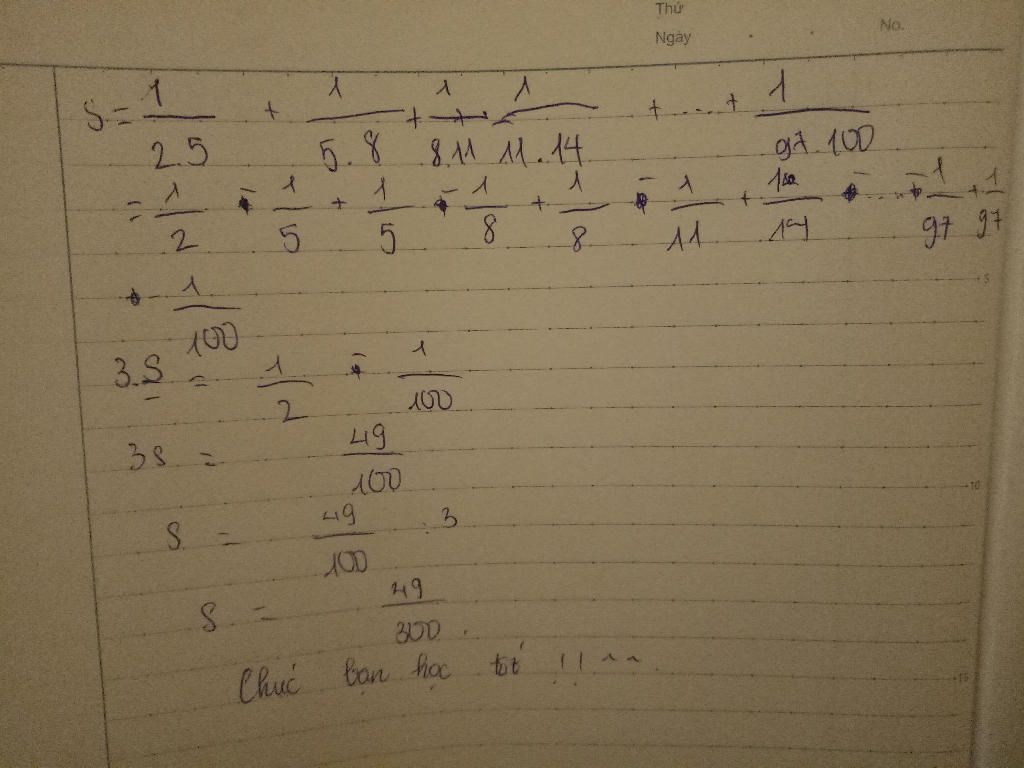 Thứ
Ngày . . No.
S = 1/2.5 + 1/5.8 + 1/8.11 + 1/11.14 + ... + 1/97.100
= 1/2 - 1/5 + 1/5 - 1/8 + 1/8 - 1/11 + 1/14 - ... - 1/97 + 1/97
- 1/100
3.S = 1/2 - 1/100
3S = 49/100
S = 49/100 . 3
S = 49/300.
Chúc bạn học tốt !! ^^